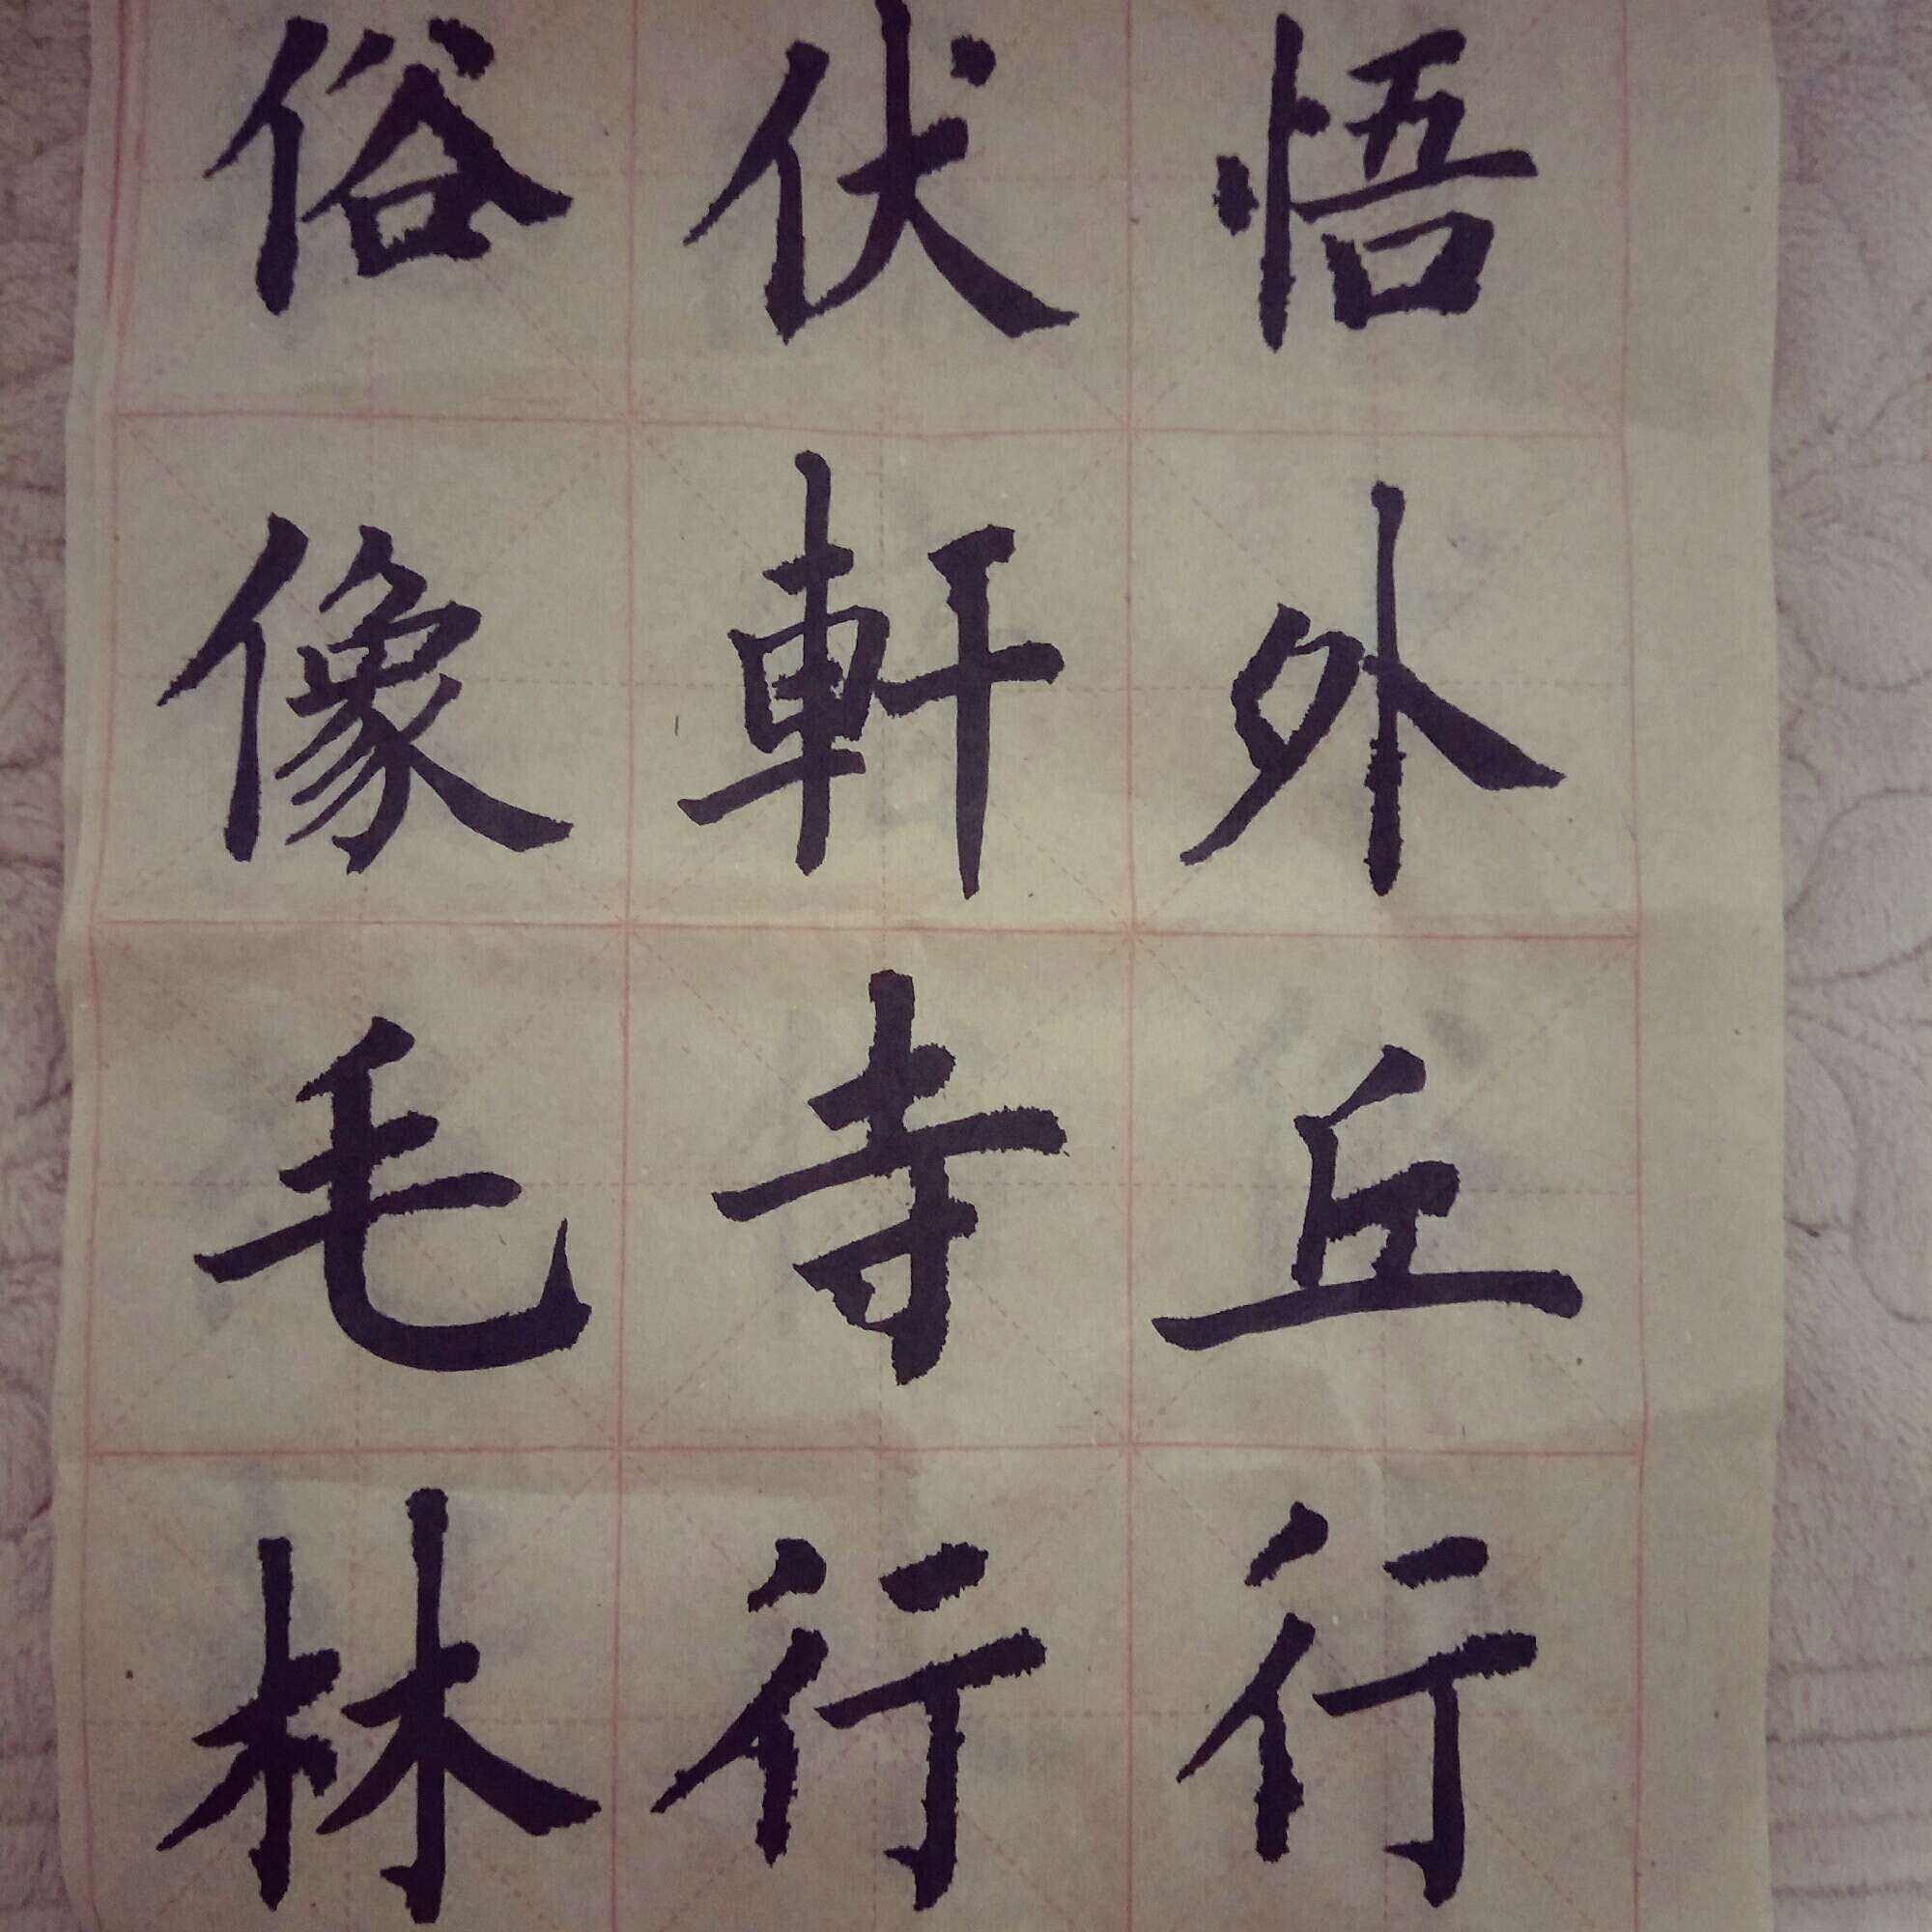 悟外丘行
伏軒寺行
俗像毛林